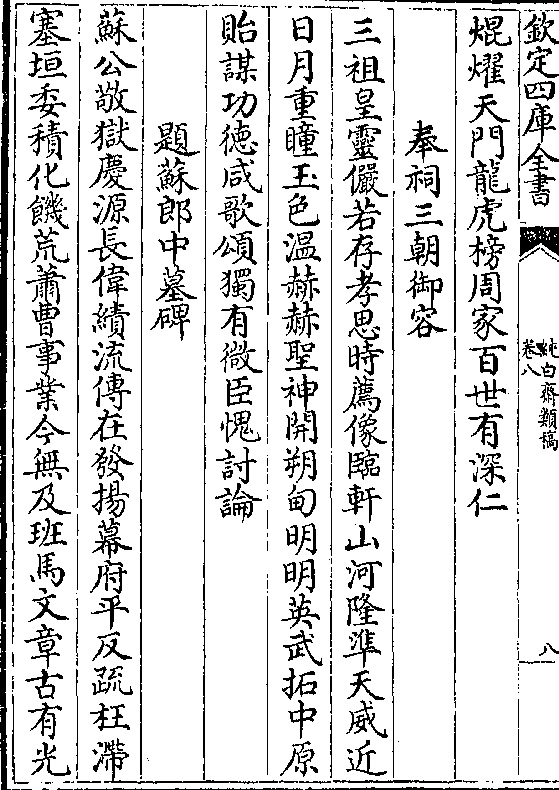 欽定四庫全書
純白齋類稿
卷八
八
焜燿天門龍虎榜周家百世有深仁
奉祠三朝御容
三祖皇靈儼若存孝思時薦像臨軒山河隆準天威近
日月重瞳玉色温赫赫聖神開朔甸明明英武拓中原
貽謀功德咸歌頌獨有微臣愧討論
題蘇郎中墓碑
蘇公敬獄慶源長偉績流傳在發揚幕府平反疏枉滯
塞垣委積化饑荒蕭曹事業今無及班馬文章古有光